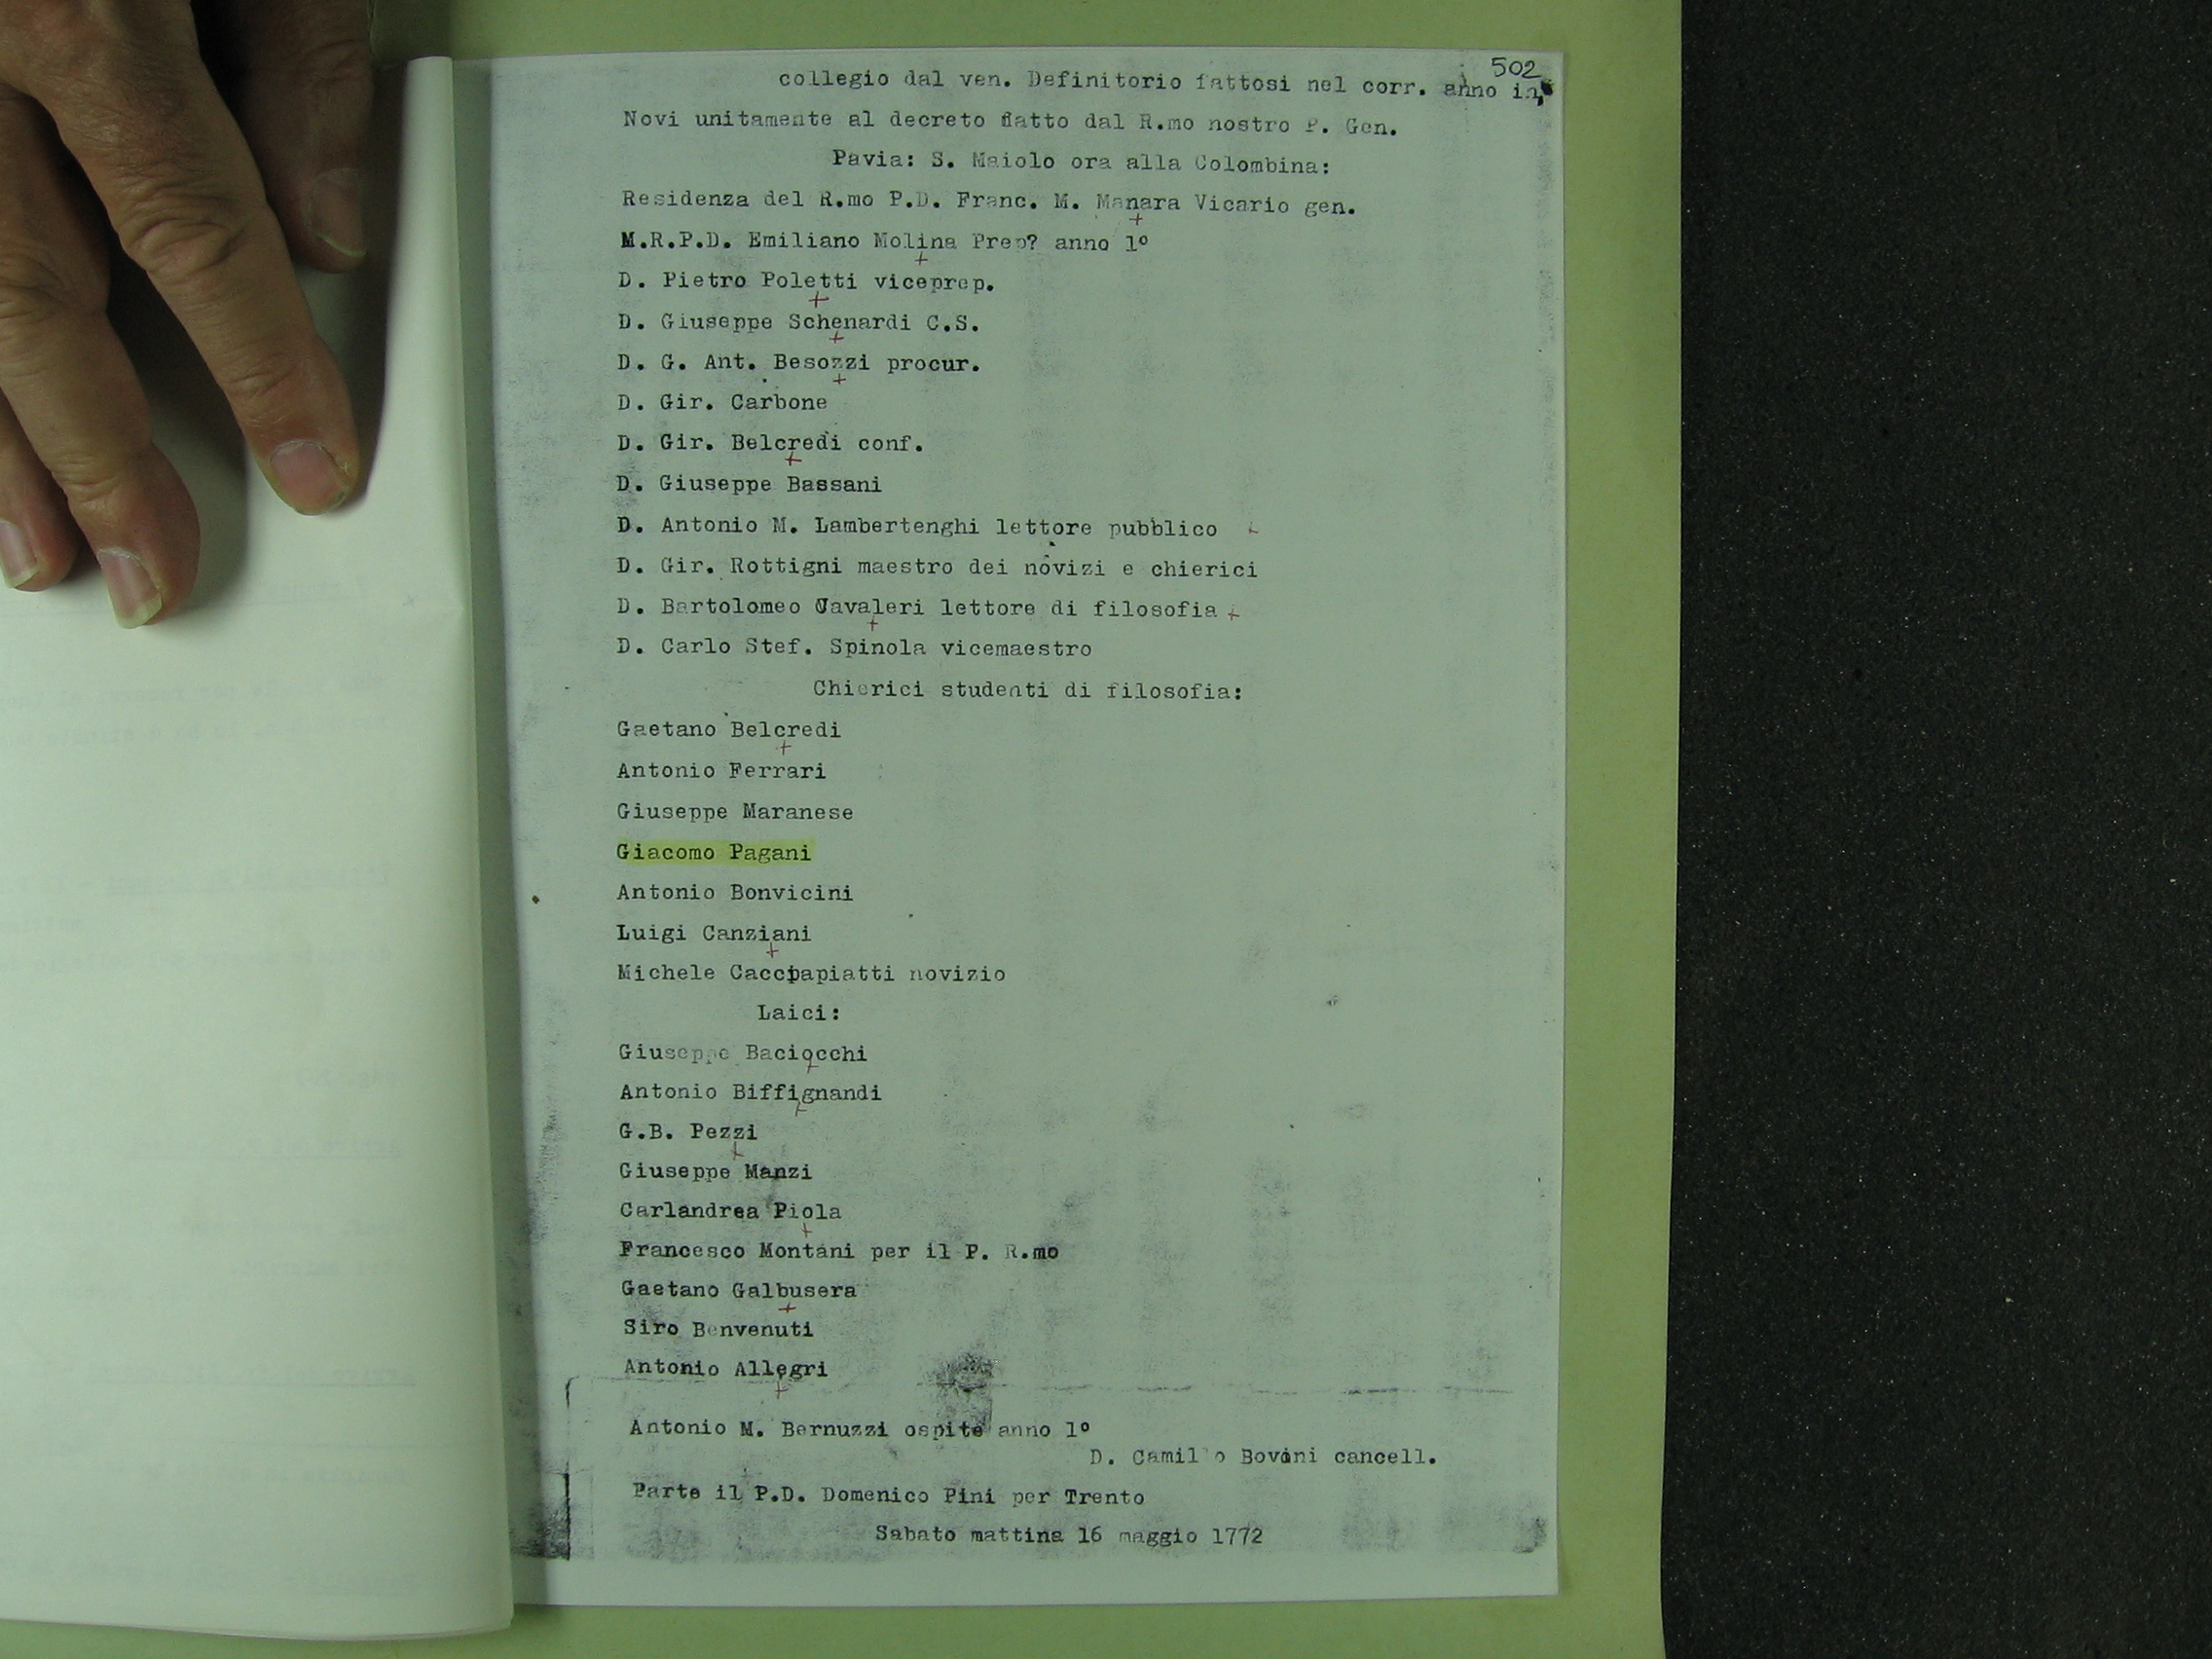 502
collegio dal ven. Definitorio fattosi nel corr. anno in
Novi unitamente al decreto fatto dal R.mo nostro P. Gen.
Pavia: S. Maiolo ora alla Colombina:
Residenza del R.mo P.D. Franc. M. Manara Vicario gen.
M.R.P.D. Emiliano Molina Prep? anno 1º
D. Pietro Poletti viceprep.
D. Giuseppe Schenardi C.S.
D. G. Ant. Besozzi procur.
D. Gir. Carbone
D. Gir. Belcredi conf.
D. Giuseppe Bassani
D. Antonio M. Lambertenghi lettore pubblico
D. Gir. Rottigni maestro dei novizi e chierici
D. Bartolomeo Cavaleri lettore di filosofia
D. Carlo Stef. Spinola vicemaestro
Chierici studenti di filosofia:
Gaetano Belcredi
Antonio Ferrari
Giuseppe Maranese
Giacomo Pagani
Antonio Bonvicini
Luigi Canziani
Michele Caccipapiatti novizio
Laici:
Giuseppe Baciocchi
Antonio Biffignandi
G.B. Pezzi
Giuseppe Manzi
Carlandrea Piola
Francesco Montani per il P. R.mo
Gaetano Galbusera
Siro Benvenuti
Antonio Allegri
Antonio M. Bernuzzi ospite anno 1º
D. Camillo Bovoni cancell.
Parte il P.D. Domenico Pini per Trento
Sabato mattina 16 maggio 1772